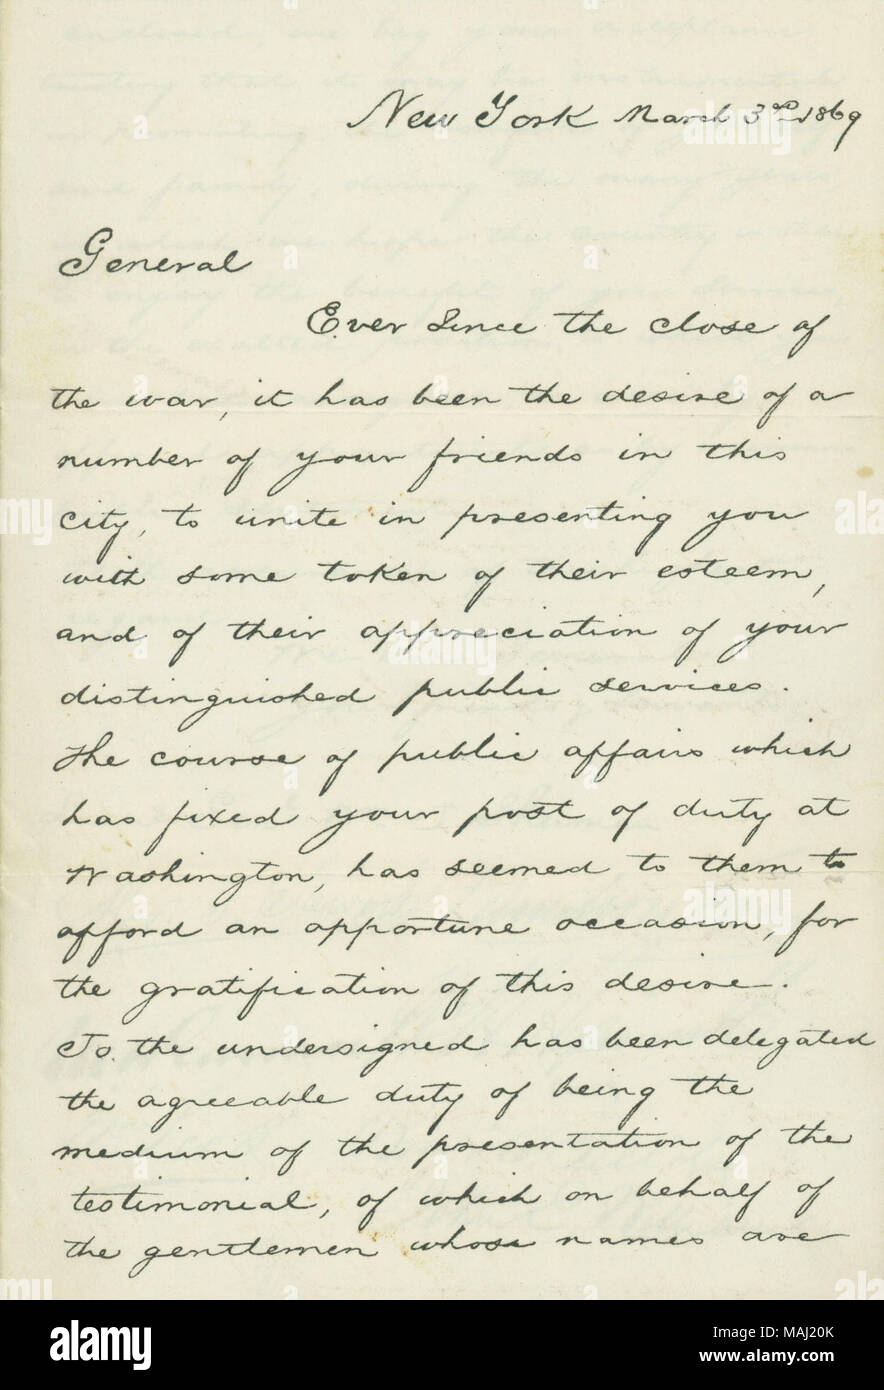 New York March 3rd 1869
General
Ever since the close of
the war, it has been the desire of a
number of your friends in this
city, to unite in presenting you
with some token of their esteem,
and of their appreciation of your
distinguished public services.
The course of public affairs which
has fixed your post of duty at
Washington, has seemed to them to
afford an opportune occasion, for
the gratification of this desire.
To the undersigned has been delegated
the agreeable duty of being the
medium of the presentation of the
testimonial, of which on behalf of
the gentlemen whose names are
alamy
Image ID: MAJ20K
www.alamy.com